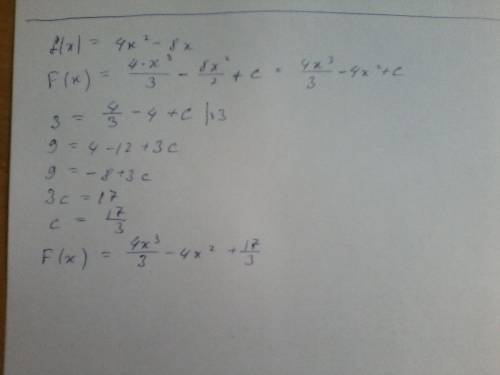 f(x) = 4x² - 8x
F(x) = 4·x³/3 - 8x²/2 + c = 4x³/3 - 4x² + c
3 = 4/3 - 4 + c |·3
9 = 4 - 12 + 3c
9 = -8 + 3c
3c = 17
c = 17/3
F(x) = 4x³/3 - 4x² + 17/3